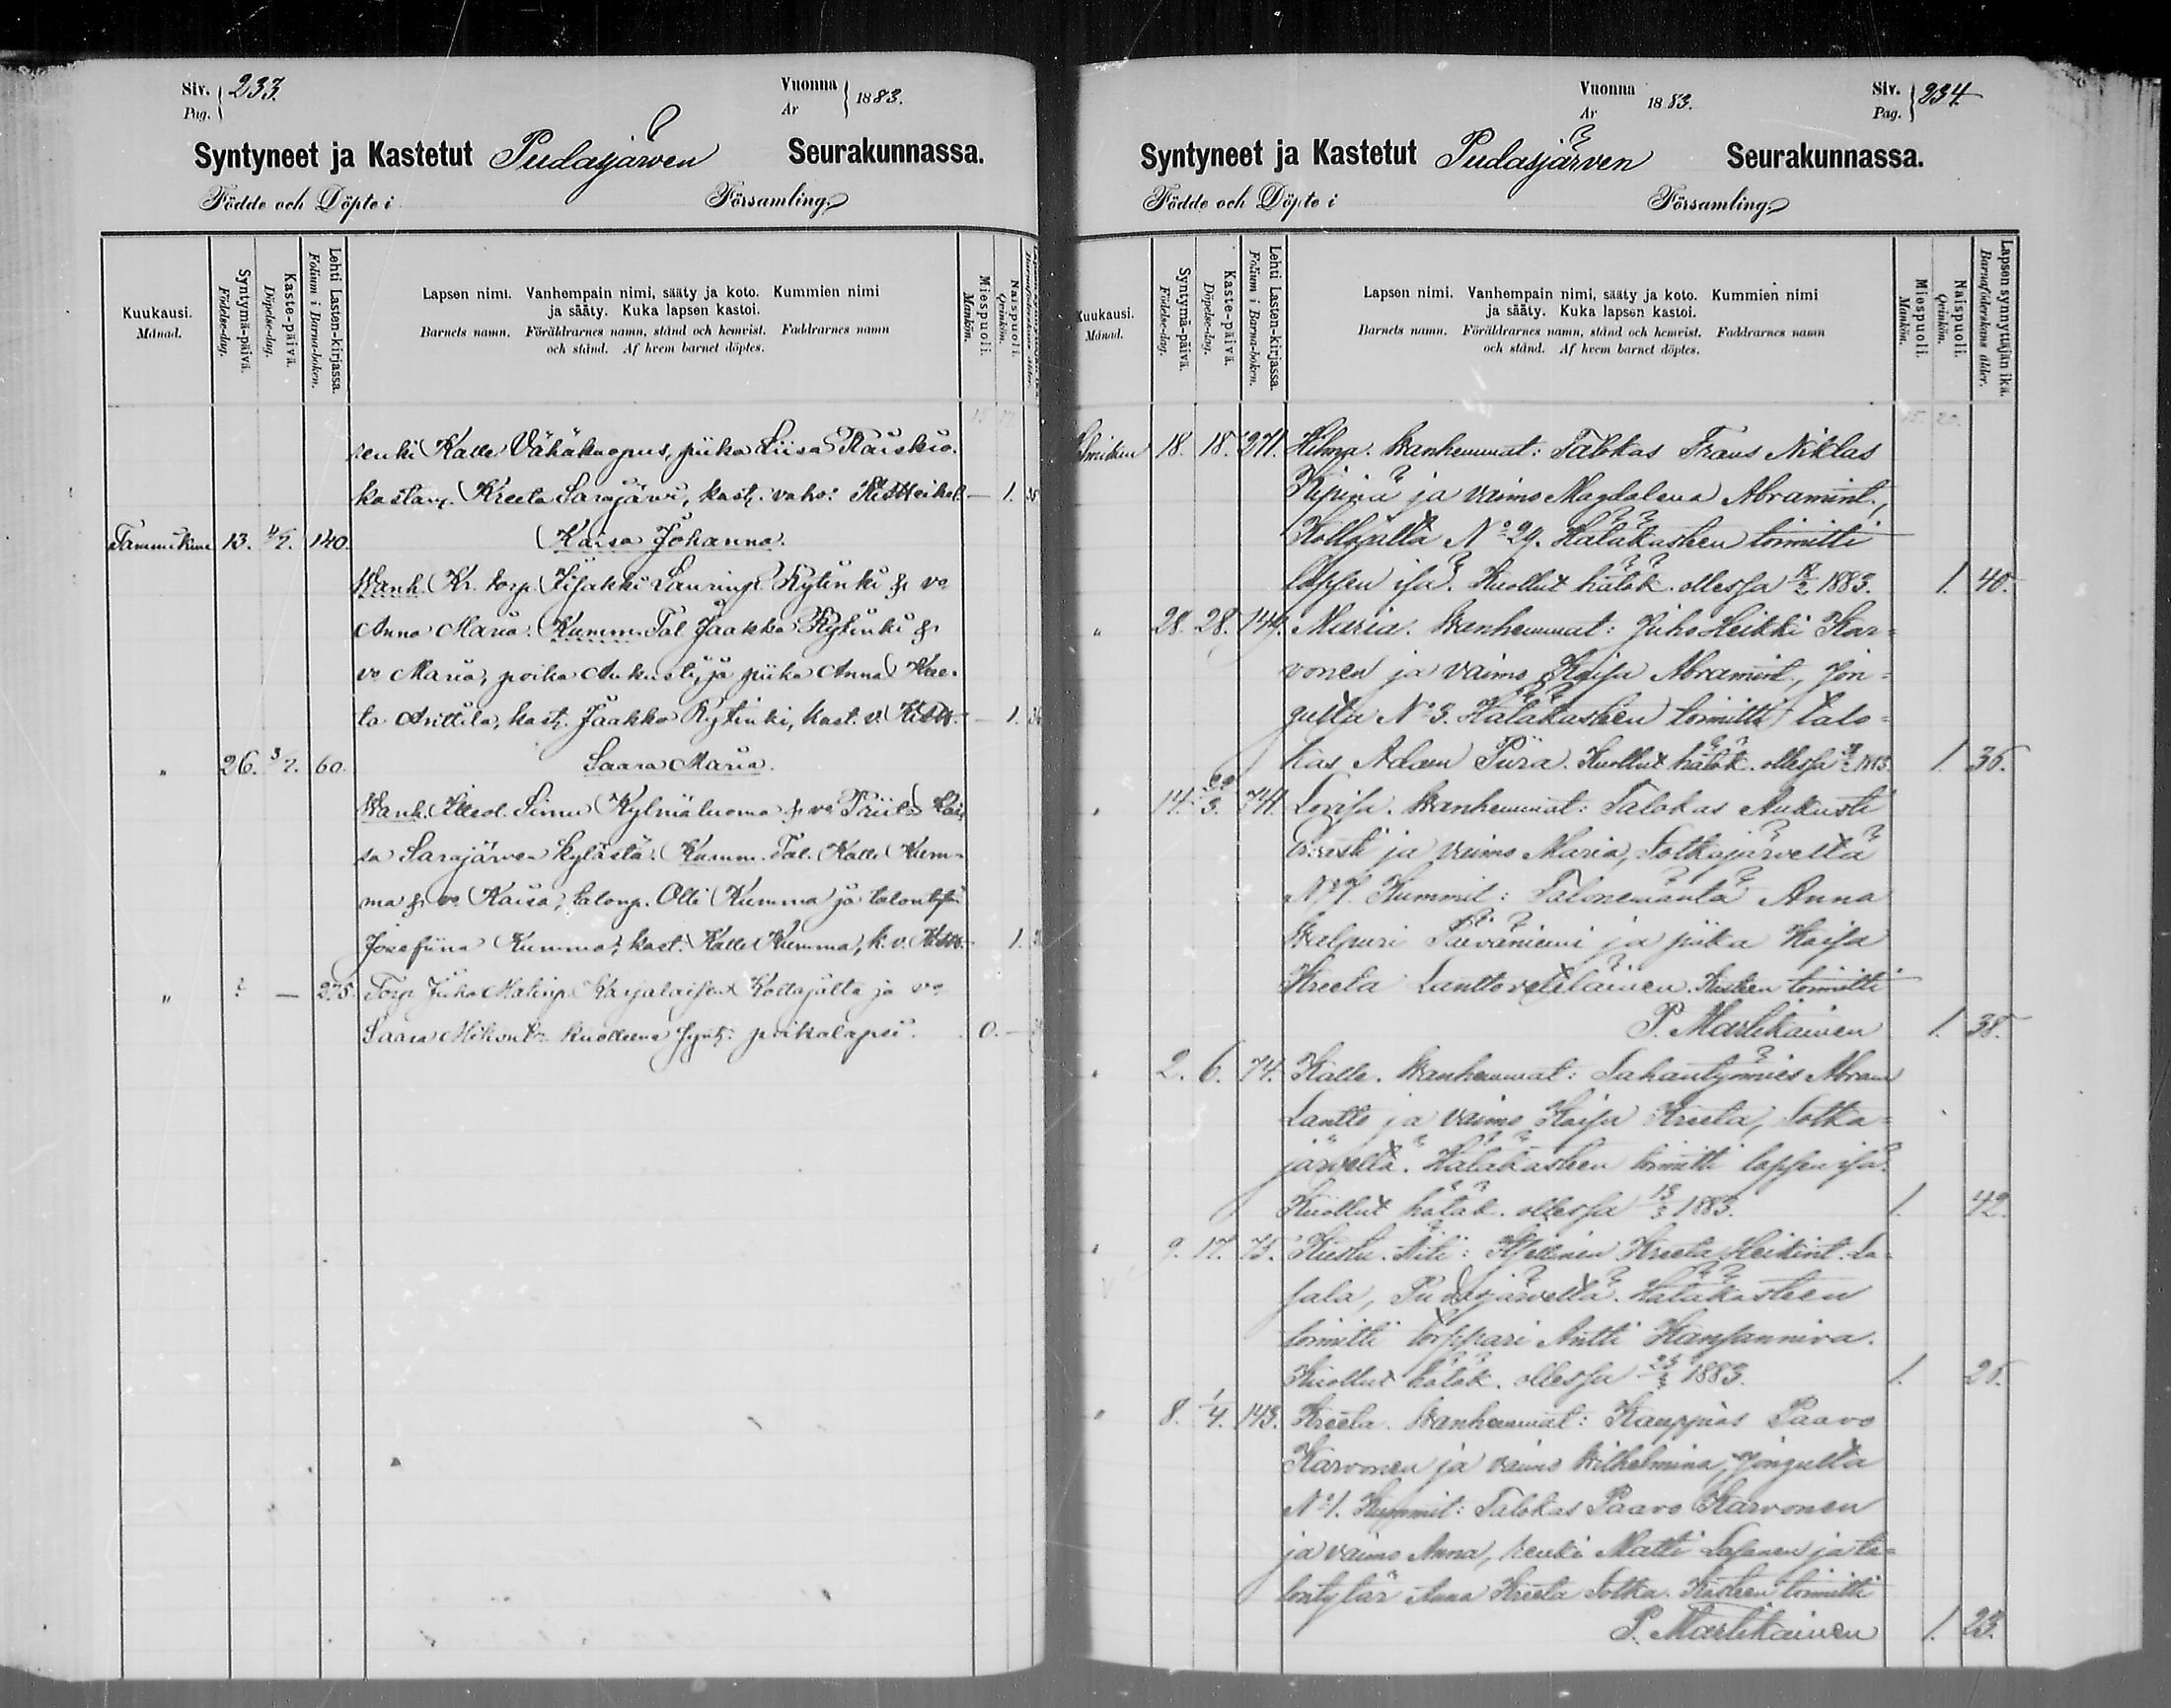 Siv. Pag. 233.
Vuonna Ar 1883.
Syntyneet ja Kastetut Pudasjärwen Seurakunnassa.
Födde och Döpte i Församling.
Kuukausi. Månad.
Syntymä-päivä. Födelse-dag.
Kaste-päivä. Döpelse-dag.
Lehti Lasten-kirjassa. Folium i Barna-boken.
Lapsen nimi. Vanhempain nimi, sääty ja koto. Kummien nimi
ja sääty. Kuka lapsen kastoi.
Barnets namn. Föräldrarnes namn, stånd och hemvist. Faddrarnes namn
och stånd. Af hvem barnet döptes.
Miespuoli. Mankön.
Naispuoli. Qvinkön.
renki Kalle Vähäkuopus, piika Liisa Räiskiö.
kastaj. Kreeta Sarajärvi, kast. vahv: — 1. 35
Tammikuu 13. 4/2. 120. Kaisa Johanna.
Wanh. Kr. torp. Iisakki Laurinp. Kytinki & vo
Anna Maria. Kumm. Tal. Jaakko Kytinki &
vo Maria, poika Aukusti, ja piika Anna Kree-
ta Anttila, kast. Jaakko Kytinki, kast. v. — 1. 36
" 26. 3/2. 60. Saara Maria.
Wanh. Itleol. Simu Kylmäluoma & vo Priita Kai-
sa Sarajärven kylästä. Kumm. Tal. Kalle Kum-
ma & vo Kaisa, talonp. Olli Kumma ja talontyt.
Josefiina Kumma, kast. Kalle Kumma, k. v. 1.
" ? — 275. Torp. Juho Matinp. Karjalaiset Kollajalta ja vo
Saara kuolleena synt. poikalapsi. 0. —
Vuonna Ar 1883.
Siv. Pag. 234.
Syntyneet ja Kastetut Pudasjärven Seurakunnassa.
Födde och Döpte i Församling
Kuukausi. Månad.
Syntymä-päivä. Födelse-dag.
Kaste-päivä. Döpelse-dag.
Lehti Lasten-kirjassa. Folium i Barna-boken.
Lapsen nimi. Vanhempain nimi, sääty ja koto. Kummien nimi
ja sääty. Kuka lapsen kastoi.
Barnets namn. Föräldrarnes namn, stånd och hemvist. Faddrarnes namn
och stånd. Af hvem barnet döptes.
Miespuoli. Mankön.
Naispuoli. Qvinkön.
Lapsen synnyttäjän ikä. Barnaföderskans ålder.
18. 18. 271. Hilma. Wanhemmat: Talokas Frans Niklas
Kipinä ja vaimo Magdalena Abramint.,
Kollajalta No 29. Hätäkasteen toimitti
lapsen isä. Kuollut hätäk. ollessa 18/2 1883. 1. 40.
" 28. 28. 149. Maria. Wanhemmat: Juho Heikki Kar-
vonen ja vaimo Kaisa Abramint., Jon-
gulta No 3. Hätäkasteen toimitti talo-
kas Adam Piira. Kuollut hätäk. ollessa 1883. 1. 36.
" 14. 3. 74. Lovisa. Wanhemmat: Talokas Aukusti
ja vaimo Maria, Sotkajärveltä
No 7. Kummit: Talonemäntä Anna
Walpuri Päiväniemi ja piika Kaisa
Kreeta Lanttovetelainen. Kasteen toimitti
P. Martikainen 1. 38.
" 2. 6. 74. Kalle. Wanhemmat: Sahantyömies Abram
Lantto ja vaimo Kaisa Kreeta, Sotka-
järveltä. Hätäkasteen toimitti lapsen isä.
Kuollut hätäk. ollessa 13/3 1883. 1. 42.
" 9. 17. 75. Äiti: Itsellinen Kreeta Heikint. La-
sala, Pudasjärveltä. Hätäkasteen
toimitti torppari Antti Kansanniva.
Kuollut hätäk. ollessa 1883. 1.
" 8. 1/4. 143. Kreeta. Wanhemmat: Kauppias Paavo
Karvonen ja vaimo Wilhelmina, Jongulta
No 1. Kummit: Talokas Paavo Karvonen
ja vaimo Anna, renki Matti ja ta-
lontytär Anna Kreeta Sotka. Kasteen toimitti
P. Martikainen 1. 23.